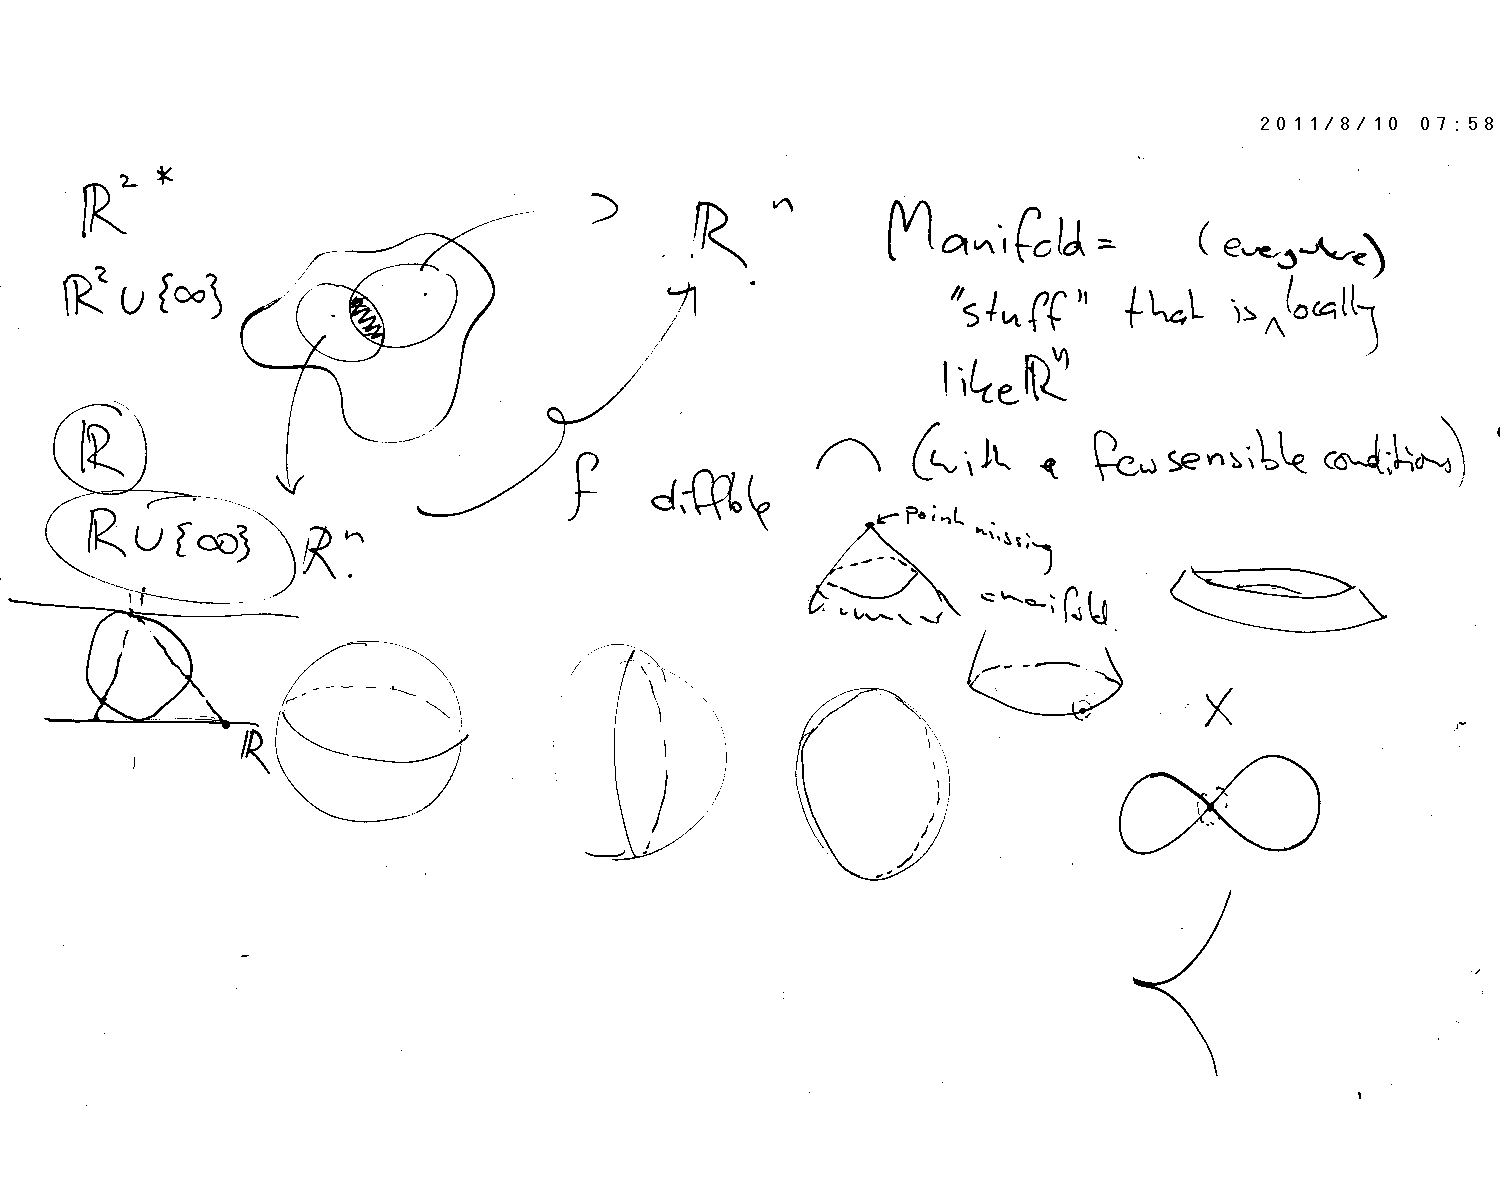 2011/8/10 07:58
ℝ² *
ℝ² ∪ {∞}
ℝⁿ
Manifold = (everywhere)
"stuff" that is ^ locally
like ℝⁿ
(with a few sensible conditions)
ℝ
ℝ ∪ {∞}
ℝⁿ
f diffble
point missing
manifold
ℝ
X